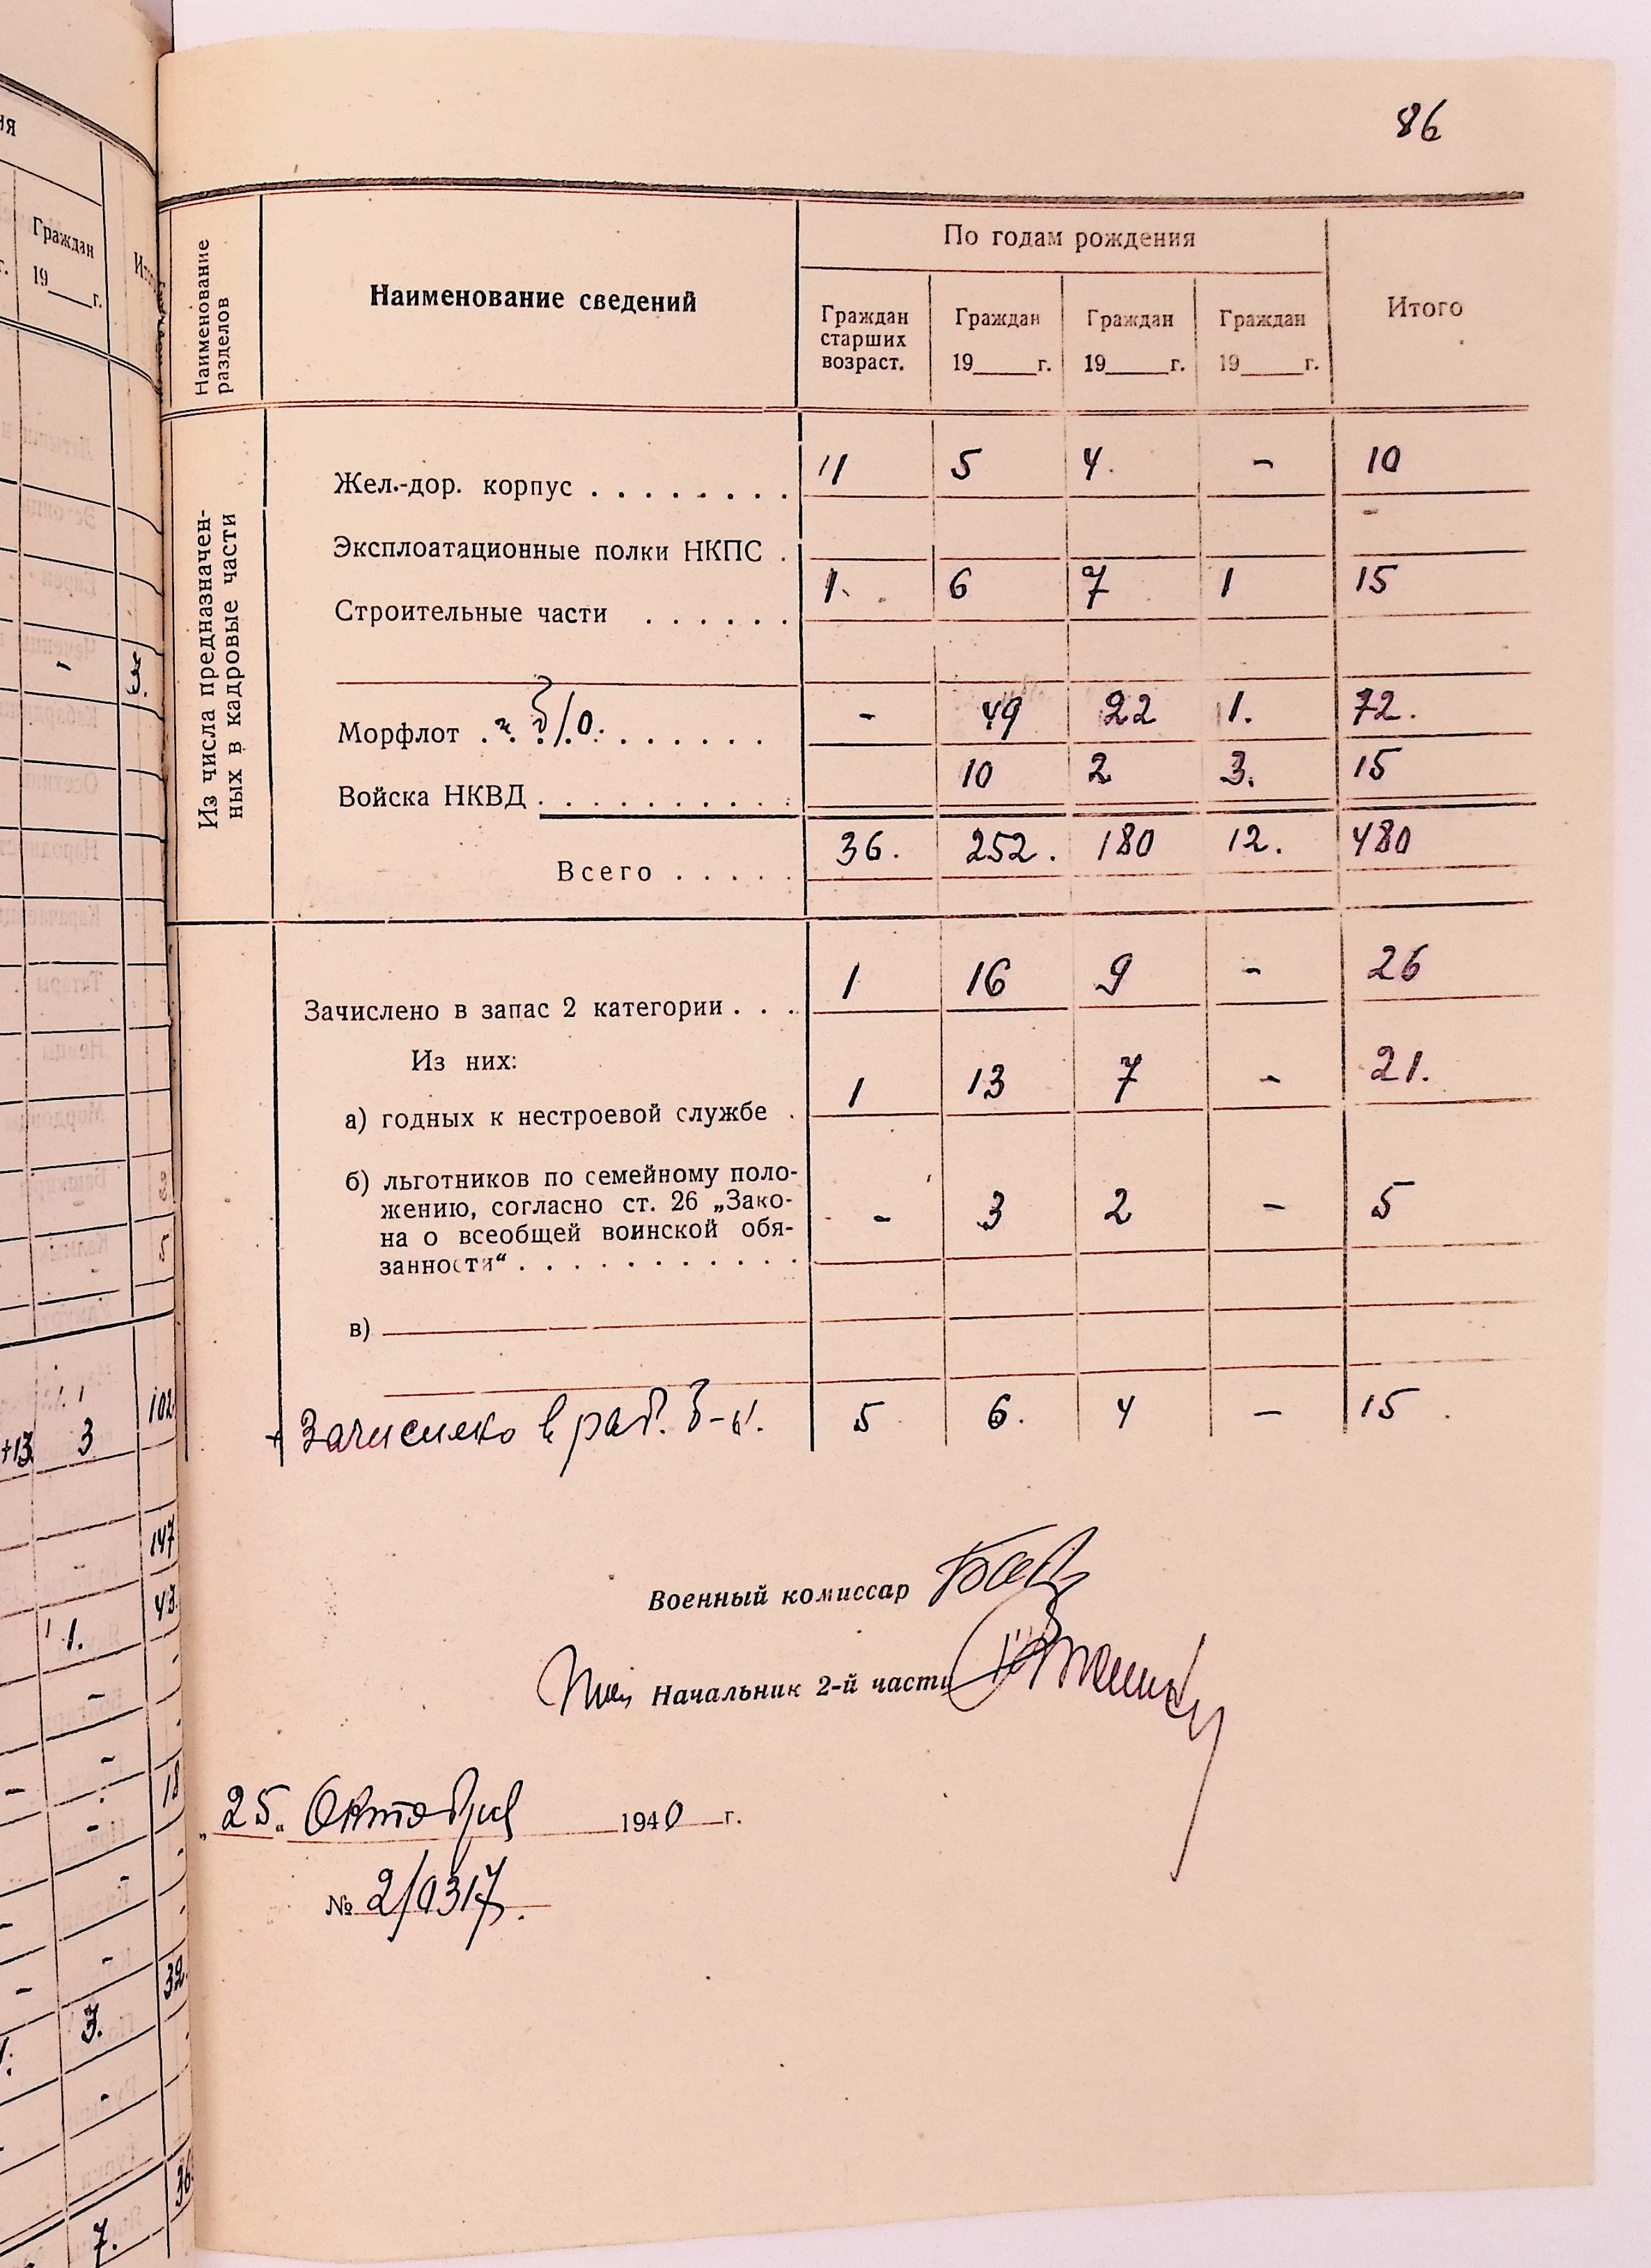 86
Наименование разделов
Наименование сведений
По годам рождения
Итого
Граждан старших возраст.
Граждан 19 г.
Граждан 19 г.
Граждан 19 г.
Из числа предназначен-
ных в кадровые части
Жел.-дор. корпус . . . . . . . . 11 5 4. - 10
Эксплоатационные полки НКПС . -
Строительные части . . . . . . 1. 6 7 1 15
Морфлот . . . . . . . . . . - 49 22 1. 72.
Войска НКВД . . . . . . . . . . 10 2 3. 15
Всего . . . . . 36. 252. 180 12. 480
Зачислено в запас 2 категории . . . 1 16 9 - 26
Из них:
а) годных к нестроевой службе . 1 13 7 - 21.
б) льготников по семейному поло-
жению, согласно ст. 26 „Зако-
на о всеобщей воинской обя-
занности“ . . . . . . . . . . . - 3 2 - 5
в)
+ Зачислено в раб. б-ы. 5 6. 4 - 15
Военный комиссар
Начальник 2-й части
„25“ Октября 1940 г.
№ 2/0317.
ия
Граждан
19 г.
102
+13 3
147
43
1.
18
32
3.
36
7.